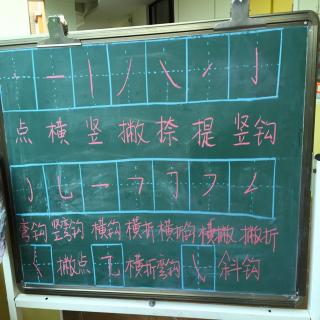 点 横 竖 撇 捺 提 竖钩
弯钩 竖弯钩 横钩 横折 横折钩 横撇 撇折
撇点 横折弯钩 斜钩